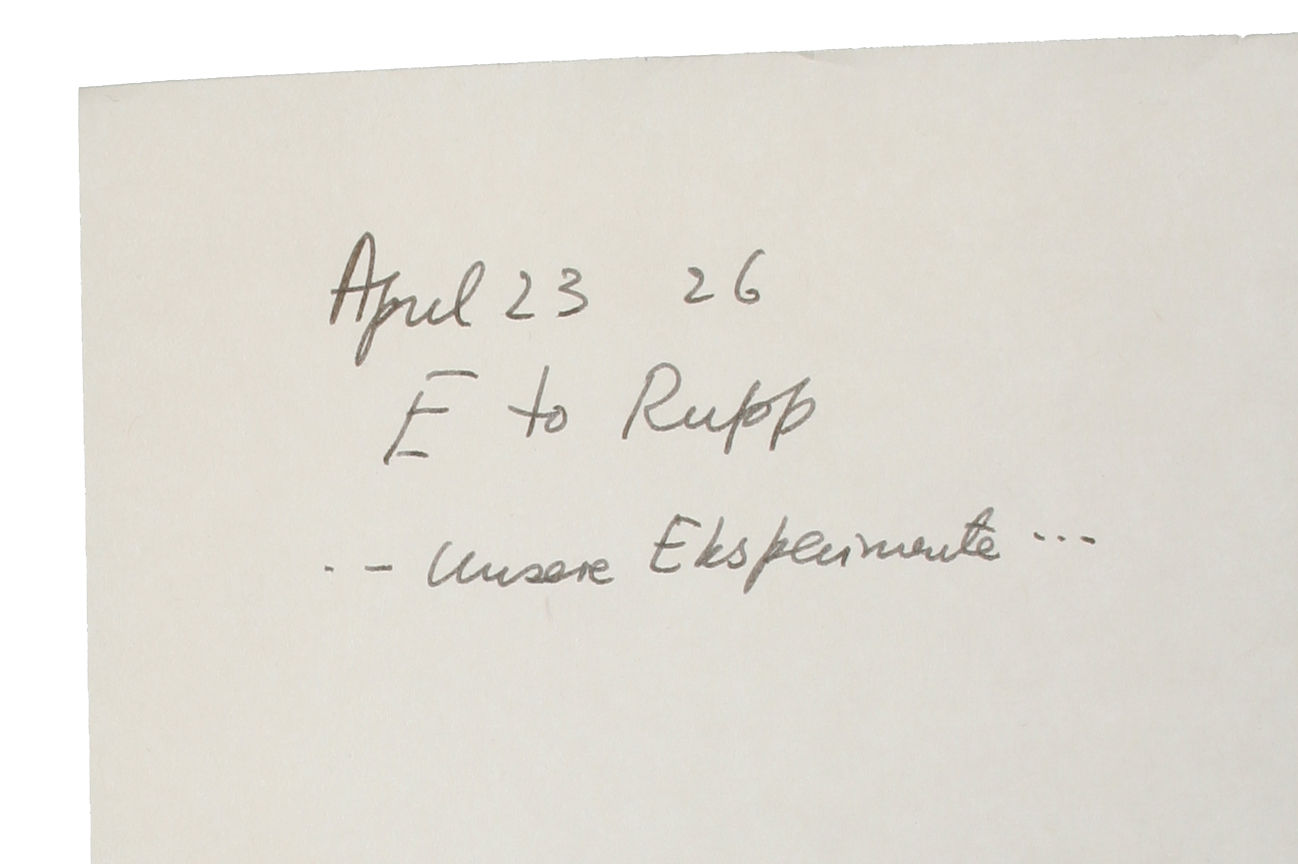 April 23 26
E to Rupp
.-- Unsere Eksperimente ...